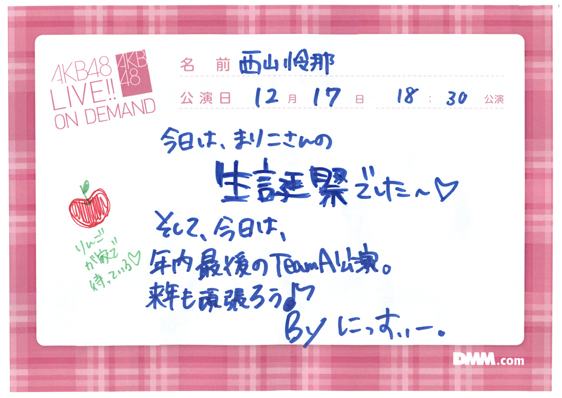 AKB48
LIVE!!
ON DEMAND
AKB
48
名前 西山怜那
公演日 12月17日 18:30公演
今日は、まりこさんの
生誕祭でした〜♡
そして、今日は、
年内最後のTeamA公演。
来年も頑張ろう♪
Byにっすぃー。
りんご
が家で
待っている♡
DMM.com